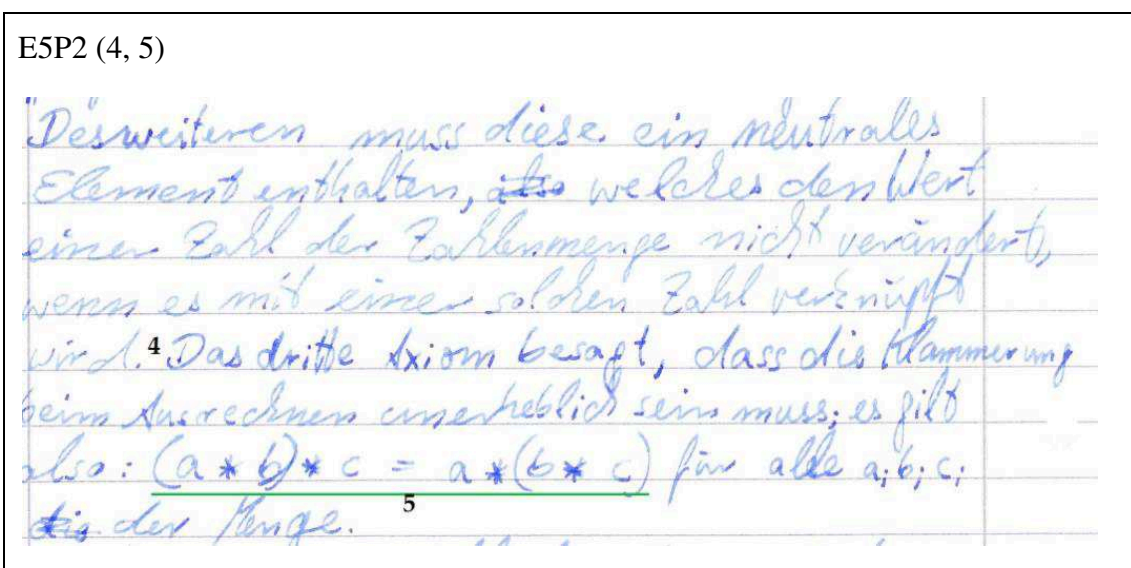 E5P2 (4, 5)
"Desweiteren muss diese ein neutrales
Element enthalten, also welches den Wert
einer Zahl der Zahlenmenge nicht verändert,
wenn es mit einer solchen Zahl verknüpft
wird. 4 Das dritte Axiom besagt, dass die Klammerung
beim Ausrechnen unerheblich sein muss; es gilt
also: (a * b) * c = a * (b * c) für alle a; b; c;
5
der Menge.